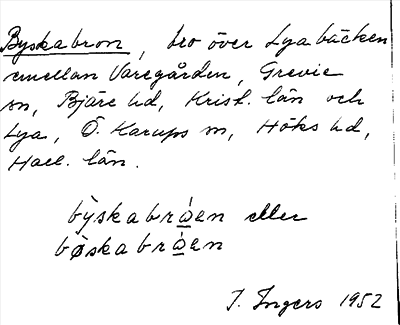 Byskabron, bro över Lyabäcken
emellan Varegården, Grevie
sn, Bjäre hd, Krist. län och
Lya, Ö. Karups sn, Höks hd,
Hall. län.
býskabrǫ́en eller
bǿskabrǫ́en
I. Ingers 1952